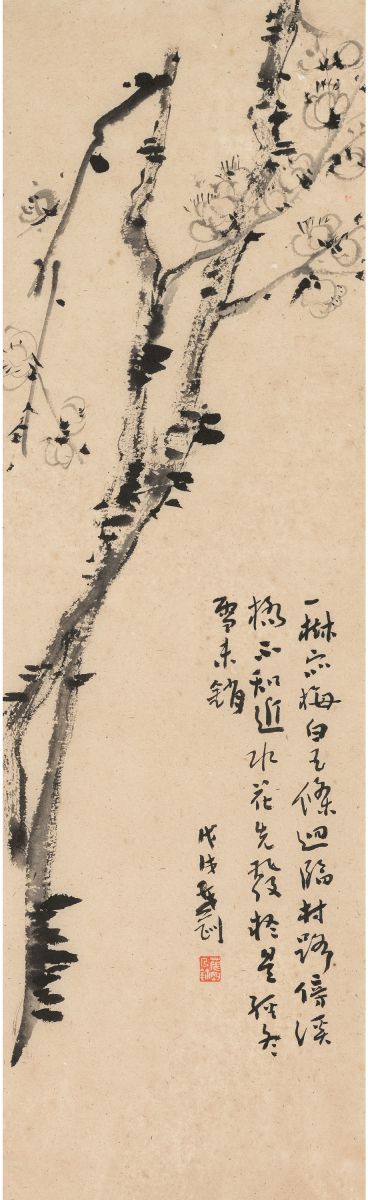 一樹寒梅白玉條迴臨村路傍溪
橋不知近水花先發於是經冬
雪未銷
戊戌